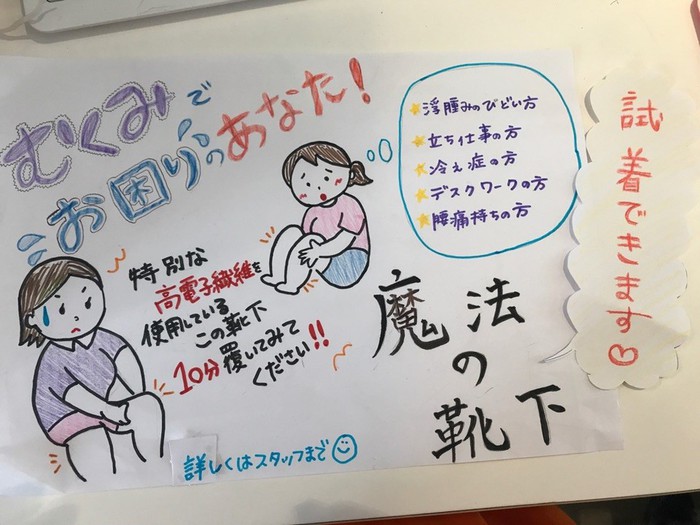 むくみで
お困りの
あなた!
浮腫みのひどい方
立ち仕事の方
冷え症の方
デスクワークの方
腰痛持ちの方
試着できます♡
特別な
高電子繊維を
使用している
この靴下
10分覆いてみて
ください!!
魔法
の
靴下
詳しくはスタッフまで☺